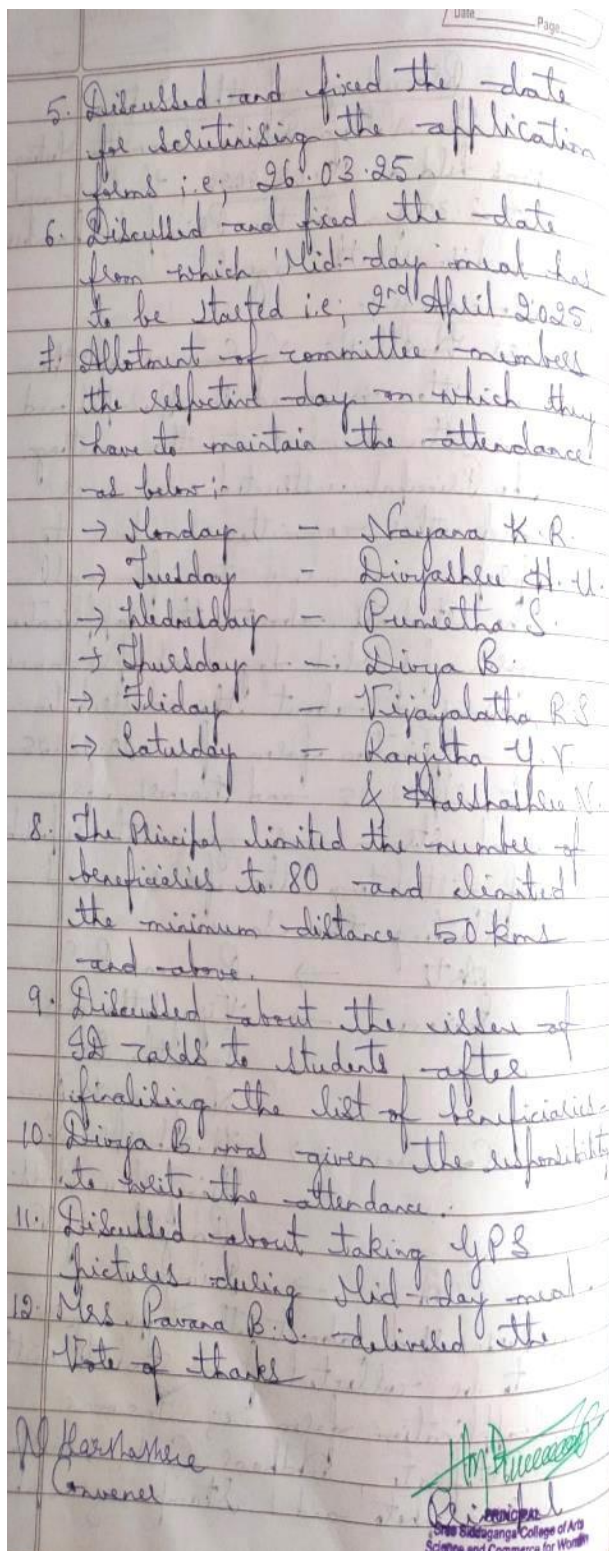 Date Page
5. Discussed and fixed the date
for scrutinising the application
forms i.e; 26.03.25.
6. Discussed and fixed the date
from which Mid-day meal has
to be started i.e; 2nd April 2025
7. Allotment of committee members
the respective day on which they
have to maintain the attendance
as below:-
→ Monday - Nayana K.R.
→ Tuesday - Divyashree H.U.
→ Wednesday - Puneetha S.
→ Thursday - Divya B.
→ Friday - Vijayalatha R S
→ Saturday - Ranjitha Y.V.
& Harshashree N.
8. The Principal limited the number of
beneficiaries to 80 and
the minimum distance 50 kms
and above.
9. Discussed about the issue of
ID cards to students after
finalising the list of beneficiaries.
10. Divya B was given the responsibility
to write the attendance.
11. Discussed about taking GPS
pictures during Mid-day meal.
12. Mrs. Pavana B.S. delivered the
Vote of thanks
Harshashree
Convener
Principal
PRINCIPAL
Sree Siddaganga College of Arts
Science and Commerce for Women